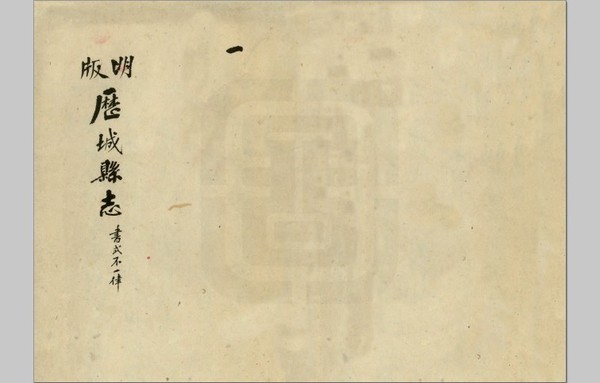 明版
歷城縣志
書式不一律
一